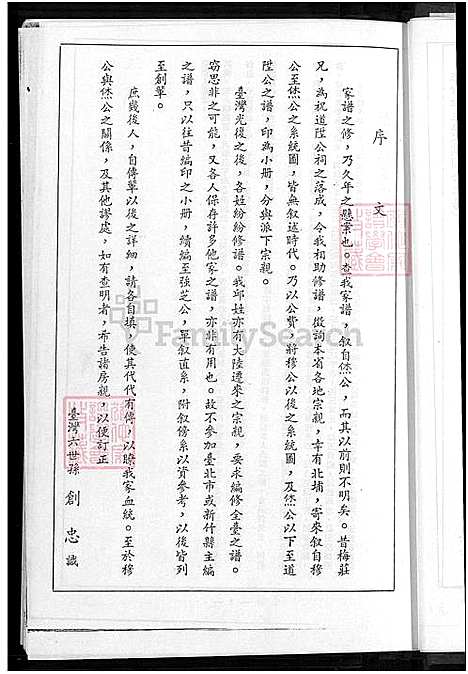 序文
家譜之修，乃久年之懸案也。查我家譜，叙自烋公，而其以前則不明矣。昔梅莊
兄，為祝道陞公祠之落成，令我相助修譜，徵詢本省各地宗親，幸有北埔，寄來叙自穆
公至烋公之系統圖，皆無叙述時代。乃以公費，將穆公以後之系統圖，及烋公以下至道
陞公之譜，印為小册，分與派下宗親。
臺灣光復之後，各姓紛紛修譜。我邱姓亦有大陸遷來之宗親，要求編修全臺之譜。
窃思非之可能，又各人保存許多他家之譜，亦非有用也。故不參加臺北市或新竹縣主編
之譜，只以往昔編印之小册，續編至強芝公，單叙直系，附叙傍系以資參考，以後皆列
至創輩。
庶幾後人，自傳輩以後之詳細，請各自填，使其代代有傳，以瞭我家血統。至於穆
公與烋公之關係，及其他謬處，如有查明者，希告諸房親，以便訂正
臺灣六世孫 創忠 識
FamilySearch